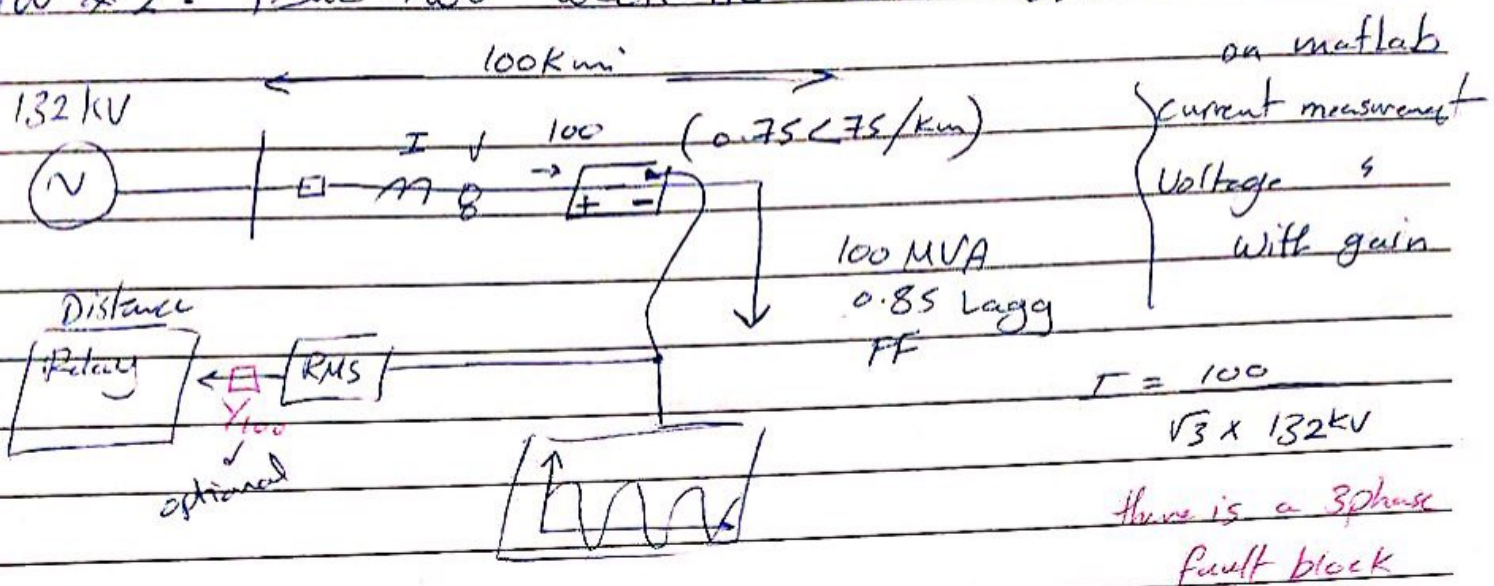 100 Km
on matlab
132 kV
I V 100 (0.75<75/km)
current measurement
Voltage "
with gain
100 MVA
0.85 Lagg
PF
Distance
Relay
RMS
1/100
optional
I = 100
√3 x 132kV
there is a 3phase
fault block